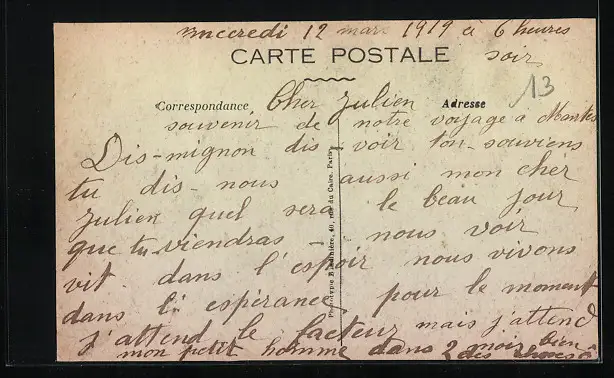 mercredi 12 mars 1919 à 6 heures
soir
CARTE POSTALE
13
Correspondance
Adresse
Cher Julien
souvenir de notre voyage à Mantes
Dis-mignon dis-voir ton-souviens
tu dis-nous aussi mon cher
Julien quel sera le beau jour
que tu-viendras - nous voir
vit. dans l'espoir nous vivons
dans l'espérance pour le moment
j'attend le facteur mais j'attend
mon petit homme dans 2 mois bien
des choses
40, rue du Caire, Paris